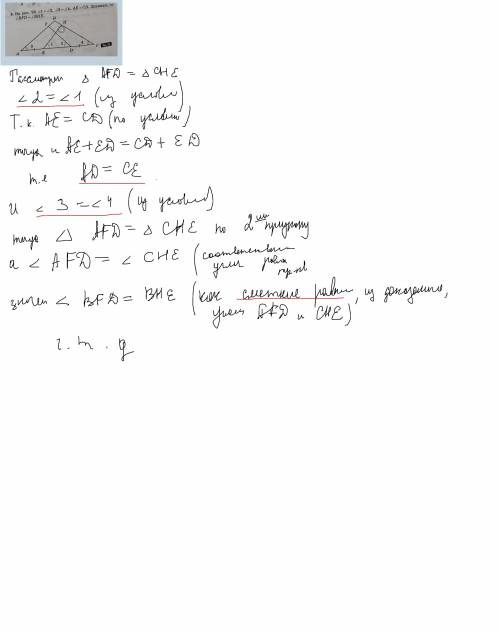 ∠BFD = ∠BHE.
Рассмотрим △ AFD = △ CHE
∠2 = ∠1 (из условия)
Т.к. AE = CD (по условию)
тогда и AE + ED = CD + ED
т.е AD = CE.
и ∠3 = ∠4 (из условия)
тогда △ AFD = △ CHE по 2 признаку
а ∠ AFD = ∠ CHE (соответственные углы равн
значит ∠ BFD = BHE (как смежные равны, из доказанного,
углы AFD и CHE)
ч. т. д